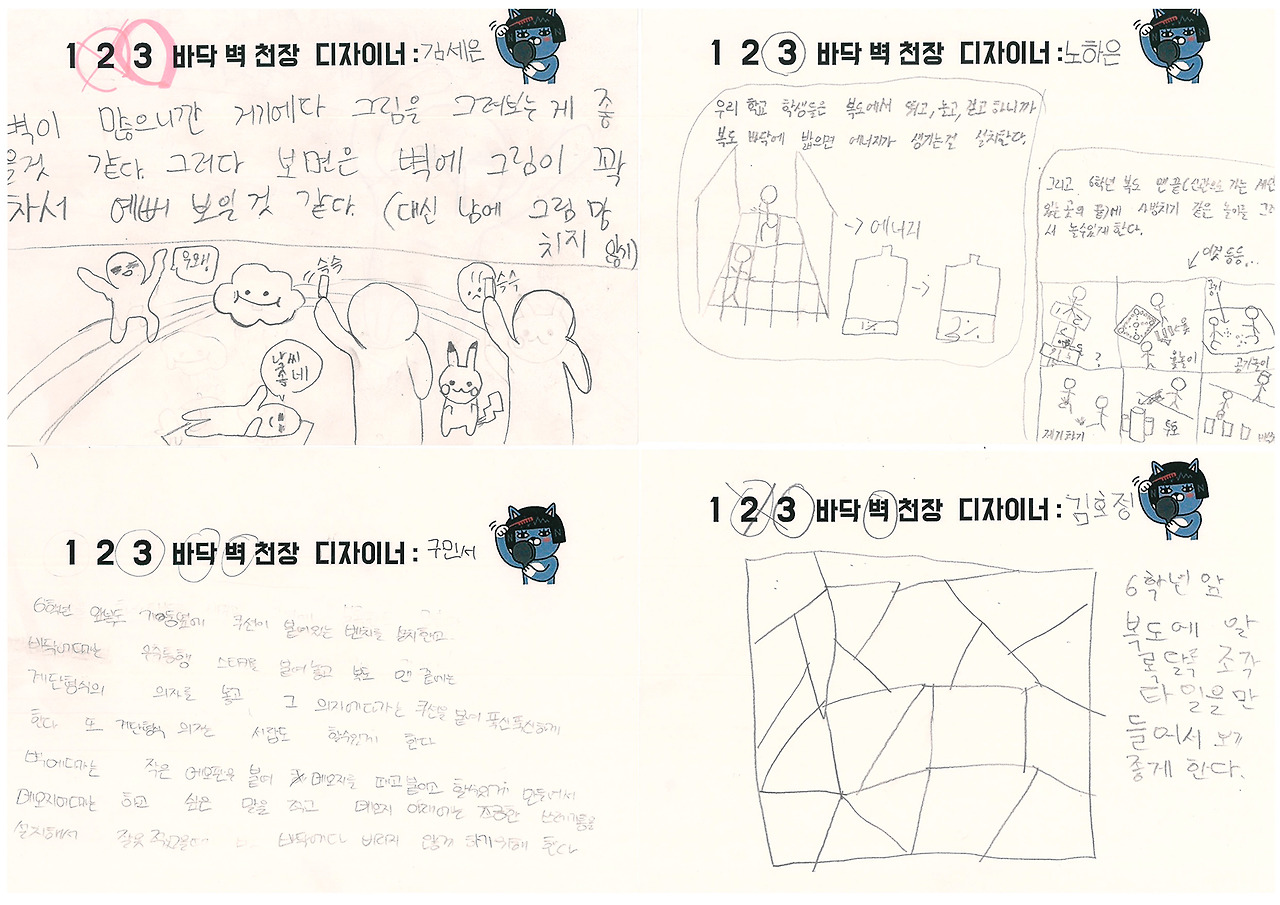 1 2 3 바닥 벽 천장 디자이너 : 김세은
벽이 많으니간 거기에다 그림을 그려보는게 좋
을것 같다. 그러다 보면은 벽에 그림이 꽉
차서 예뻐 보일것 같다. (대신 남에 그림 망
치지 않기)
우와!
슥슥
슥슥
날씨
좋네
1 2 3 바닥 벽 천장 디자이너 : 노하은
우리 학교 학생들은 복도에서 뛰고, 놀고, 걷고 하니까
복도 바닥에 밟으면 에너지가 생기는걸 설치한다.
→ 에너지
1%
3%
그리고 6학년 복도 맨 끝(신관으로 가는
있는 곳의 끝)에 사방치기 같은 놀이를
서 놀수있게 한다.
이것 등등...
공기
?
윷
윷놀이
공기놀이
제기차기
투호
1 2 3 바닥 벽 천장 디자이너 : 구민서
6학년 앞복도 기둥옆에 쿠션이 붙어있는 벤치를 설치한고
바닥에다가는 우주통행 스티커를 붙여놓고 복도 맨 끝에는
계단형식의 의자를 놓고 그 의자에다가는 쿠션을 붙여 푹신푹신하게
한다 또 계단형식 의자는 서랍도 할수있게 한다
벽에다가는 작은 메모판을 붙여 메모지를 떼고 붙이고 할수있게 만들어서
메모지에다가는 하고 싶은 말을 적고 메모지 아래에는 조그만 쓰레기통을
설치해서 잘못 적었을때 바닥에다 버리지 않게 하기위해 한다
1 2 3 바닥 벽 천장 디자이너 : 김호정
6학년 앞
복도에 알
록달록 조각
타일을 만
들어서 보기
좋게 한다.